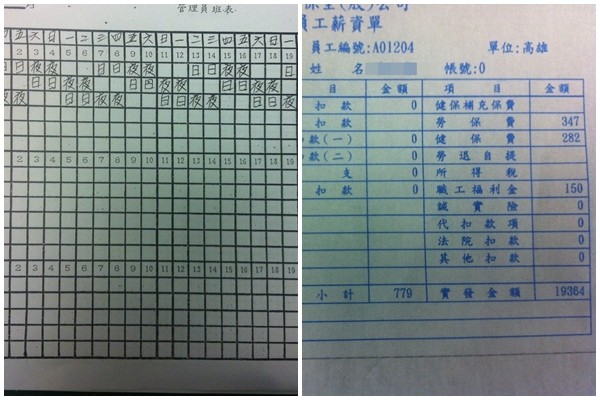 月 管理員班表
五 六 日 一 二 三 四 五 六 日 一 二 三 四 五 六 日 一
2 3 4 5 6 7 8 9 10 11 12 13 14 15 16 17 18 19
日 日 夜 夜 日 日 夜 夜 日 日 夜 夜 日
日 日 夜 夜 日 日 夜 夜 日 日 夜 夜
夜 夜 日 日 夜 夜 日 日 夜 夜 日 日 夜
2 3 4 5 6 7 8 9 10 11 12 13 14 15 16 17 18 19
2 3 4 5 6 7 8 9 10 11 12 13 14 15 16 17 18 19
保全(股)公司
員工薪資單
員工編號:A01204 單位:高雄
姓 名 帳號:0
目 金額 項 目 金額
扣 款 0 健保補充保費
扣 款 0 勞 保 費 347
款(一) 0 健 保 費 282
款(二) 0 勞 退 自 提
支 0 所 得 稅 0
扣 款 0 職工福利金 150
誠 實 險 0
代 扣 款 項 0
法 院 扣 款 0
其 他 扣 款 0
小 計 779 實發金額 19364